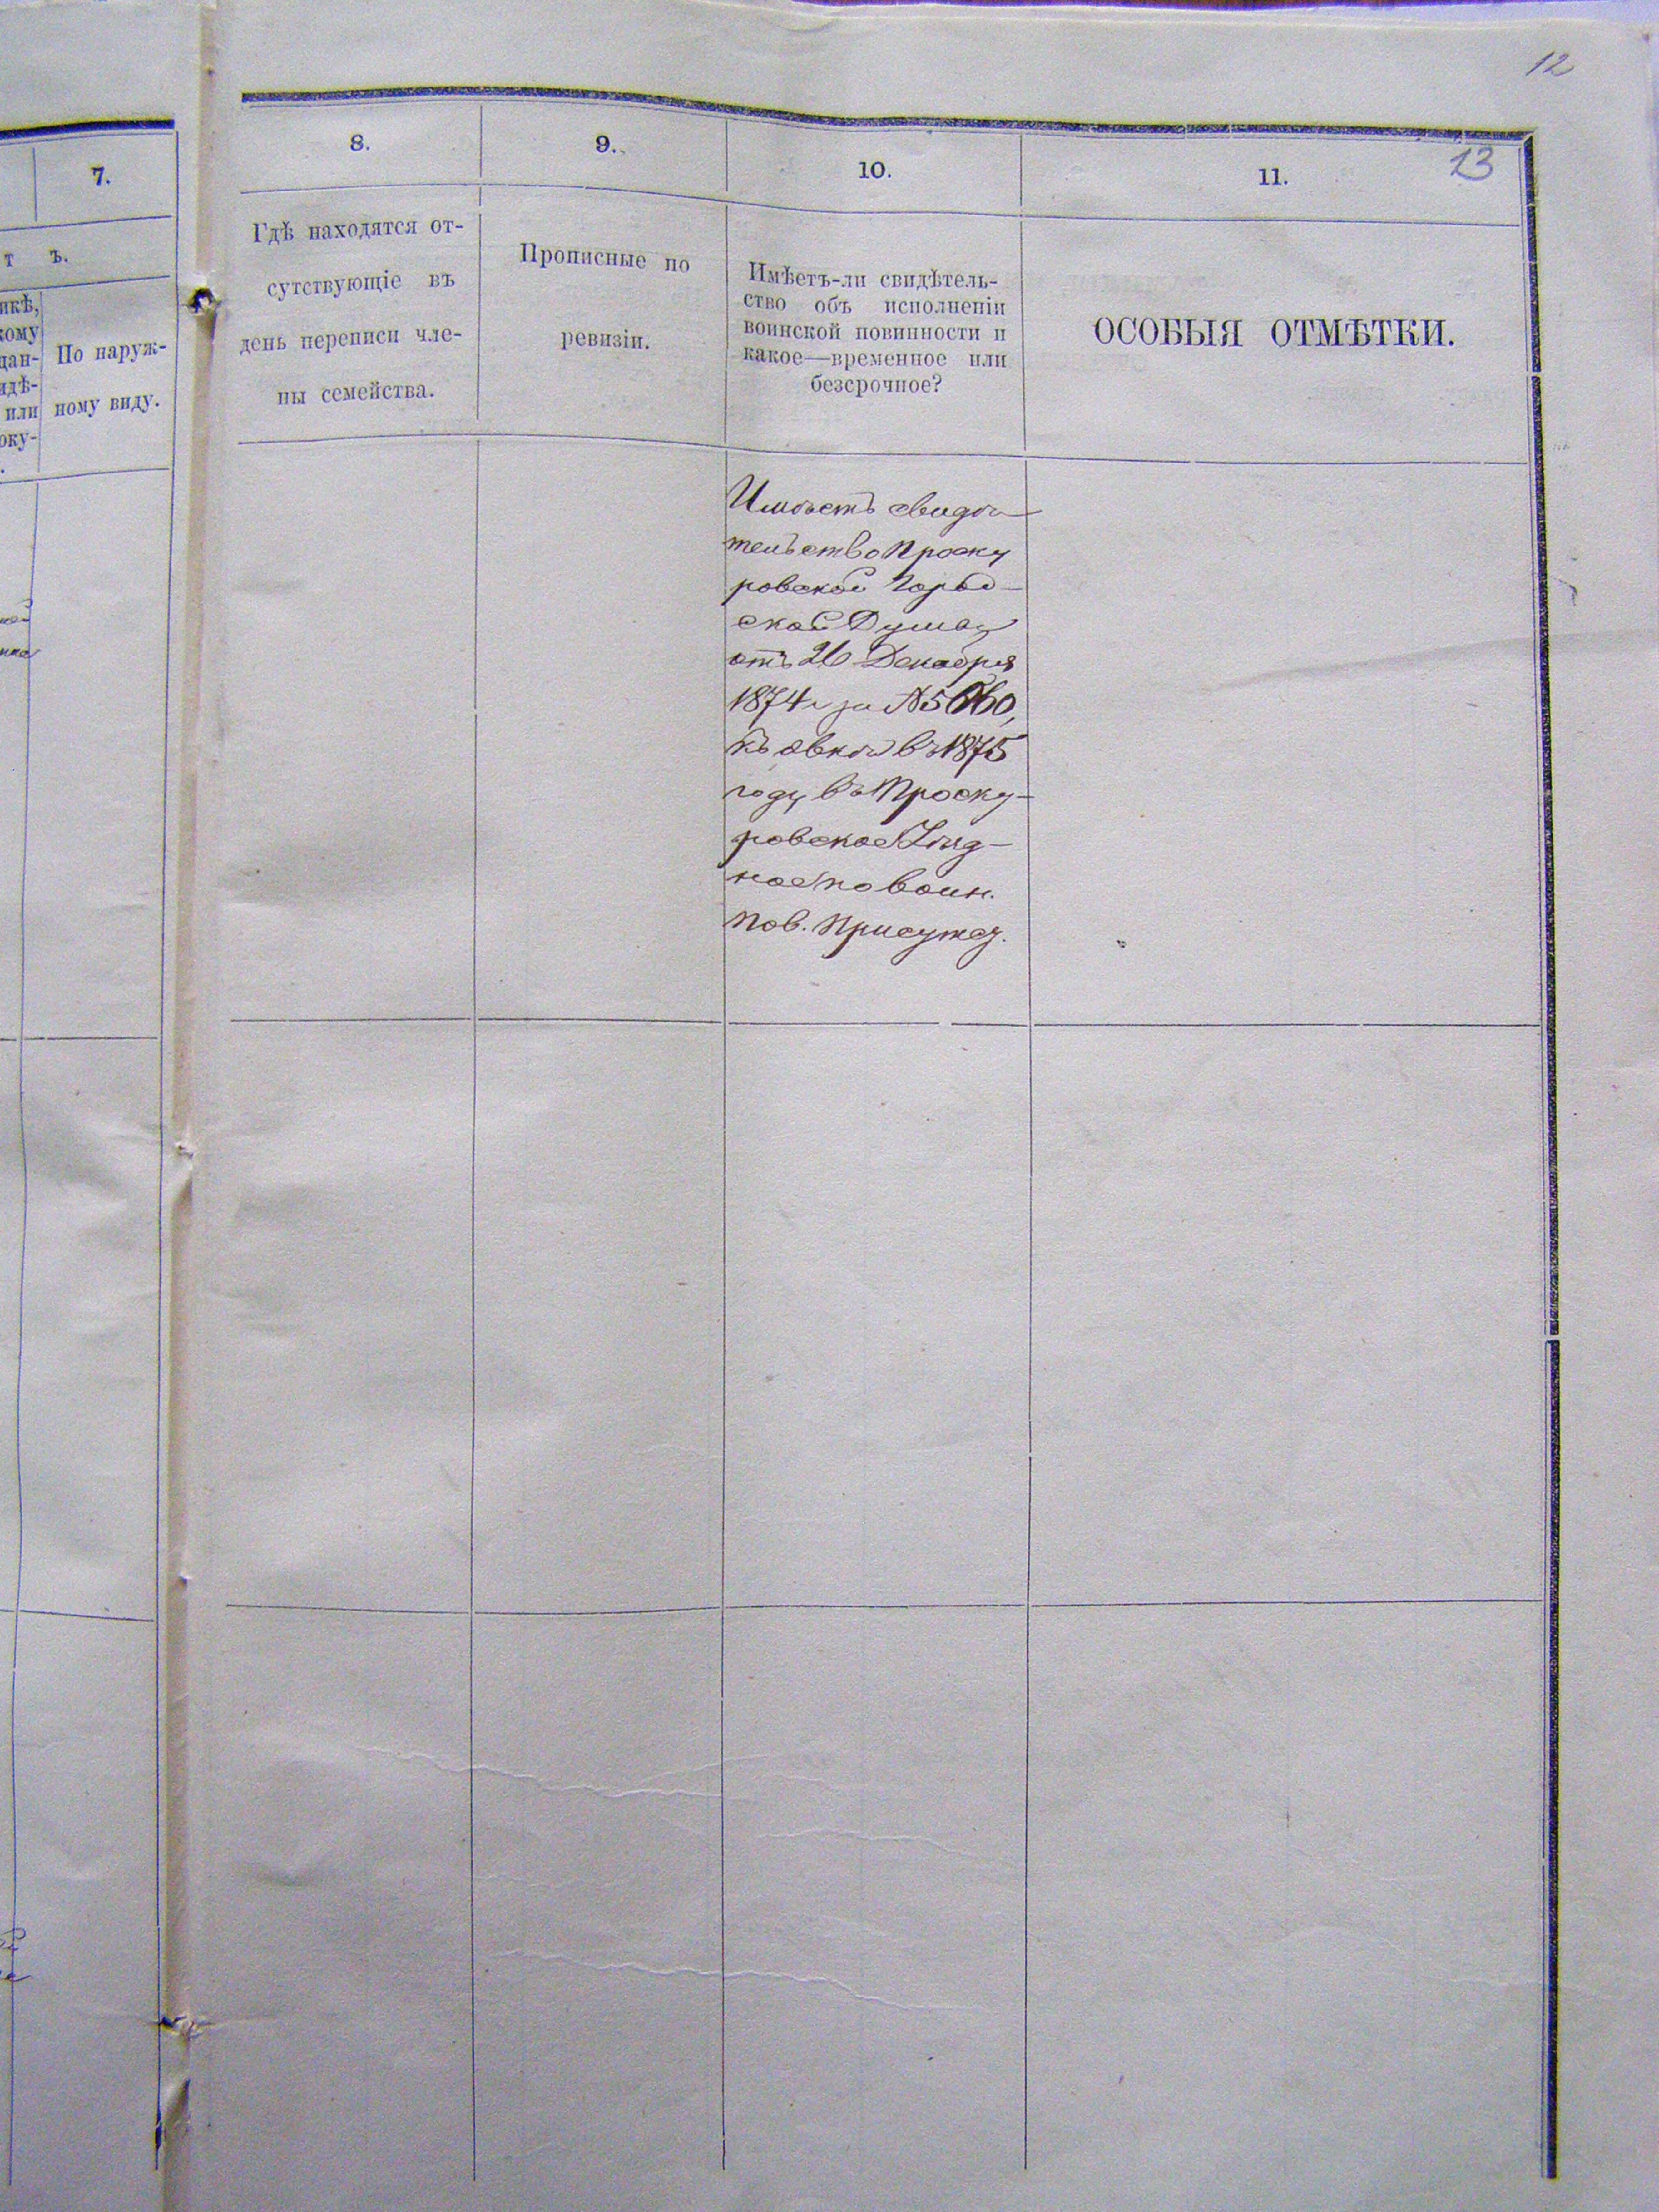 12
13
7.
8.
9.
10.
11.
т ъ.
икѣ,
кому
дан-
идѣ-
или
оку-
По наруж-
ному виду.
Гдѣ находятся от-
сутствующіе въ
день переписи чле-
ны семейства.
Прописные по
ревизіи.
Имѣетъ-ли свидѣтель-
ство объ исполненіи
воинской повинности и
какое—временное или
безсрочное?
ОСОБЫЯ ОТМѢТКИ.
Имѣетъ свидѣ-
тельство Проску
ровской Город-
ской Думы
отъ 26 Декабря
1874 г за №
къ явкѣ въ 1875
году въ Проску-
ровское Уѣзд-
ное по воин.
пов. Присутст.